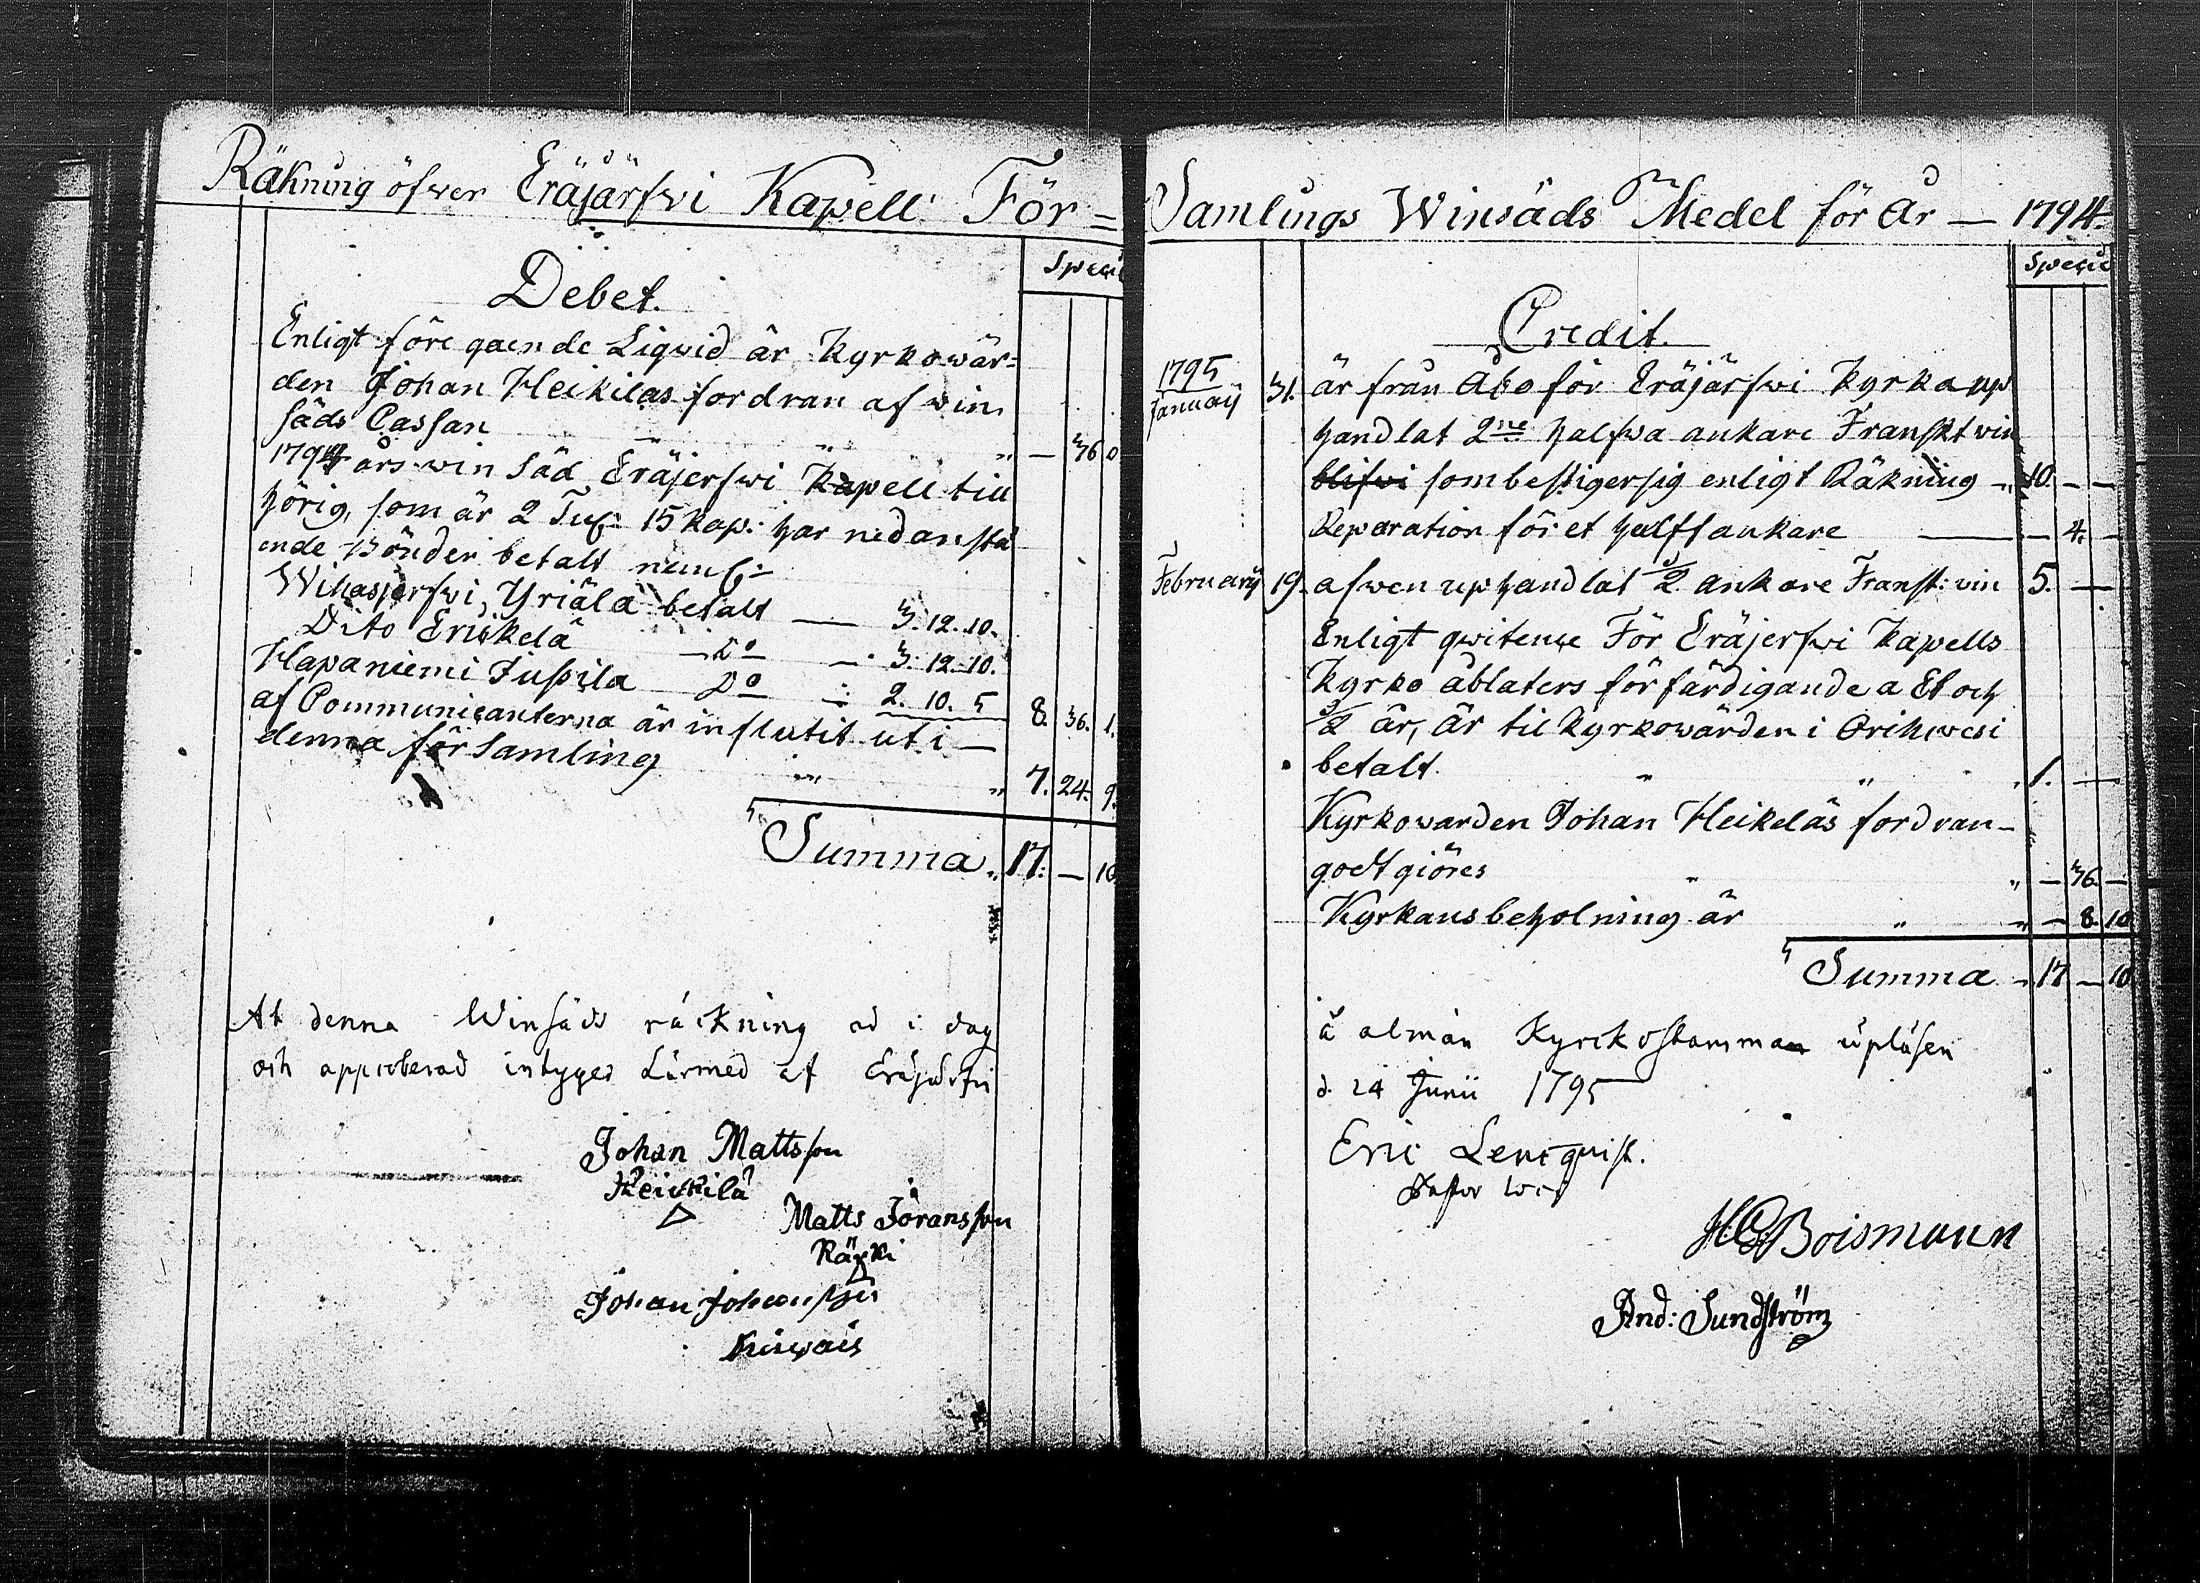 Räkning öfwer Eräjärfwi Kapell För=
Specie
Debet.
Enligt före gaende Liqwid är Kyrkowär=
den Johan Heikilas fordran af win
säds Cassan — 36 0
1794 års win säd Eräjerfwi Kapell till
hörig, som är 2 Tu: 15 kap: har nedanstå
ende Bönder betalt neml:
Wihasjerfwi, Yriälä betalt — 3. 12. 10.
Dito Erickelä — Do — 3. 12. 10.
Hapaniemi Jussila Do 2. 10. 5 8. 36. 1.
af Communicanterna är influtit uti —
denna församling 7. 24. 9.
Summa 17. — 10.
At denna Winsäds räckning ad i dag
och approberad intyges härmed af Eräjerfwi
Johan Mattsson
Heickilä
Matts Jöransson
Räcki
Johan Johansson
Samlings Winsäds Medel för År — 1794.
Specie
Credit.
1795
January 31. är från Åbo för Eräjärfwi Kyrka up
handlat 2ne halfwa ankare Franskt win
blifwi som bestigersig enligt Räkning 10. — —
Reparation för et halft ankare — — 4. —
February 19. afwen uphandlat 1/2 ankare Franst: vin 5. —
Enligt qwitence För Eräjerfwi Kapells
Kyrko åblaters förfärdigande a Et och
1/2 år, är til Kyrkowärden i Orihwesi
betalt. 1. —
Kyrkowarden Johan Heikeläs fordran —
godt giöres — 36. —
Kyrkans beholning är — 8. 10
Summa 17 — 10
å alman Kyrckostamman upläsen
d. 24 Junii 1795
Eric Lencquist.
Pastor
HG Boismann
And: Sundström